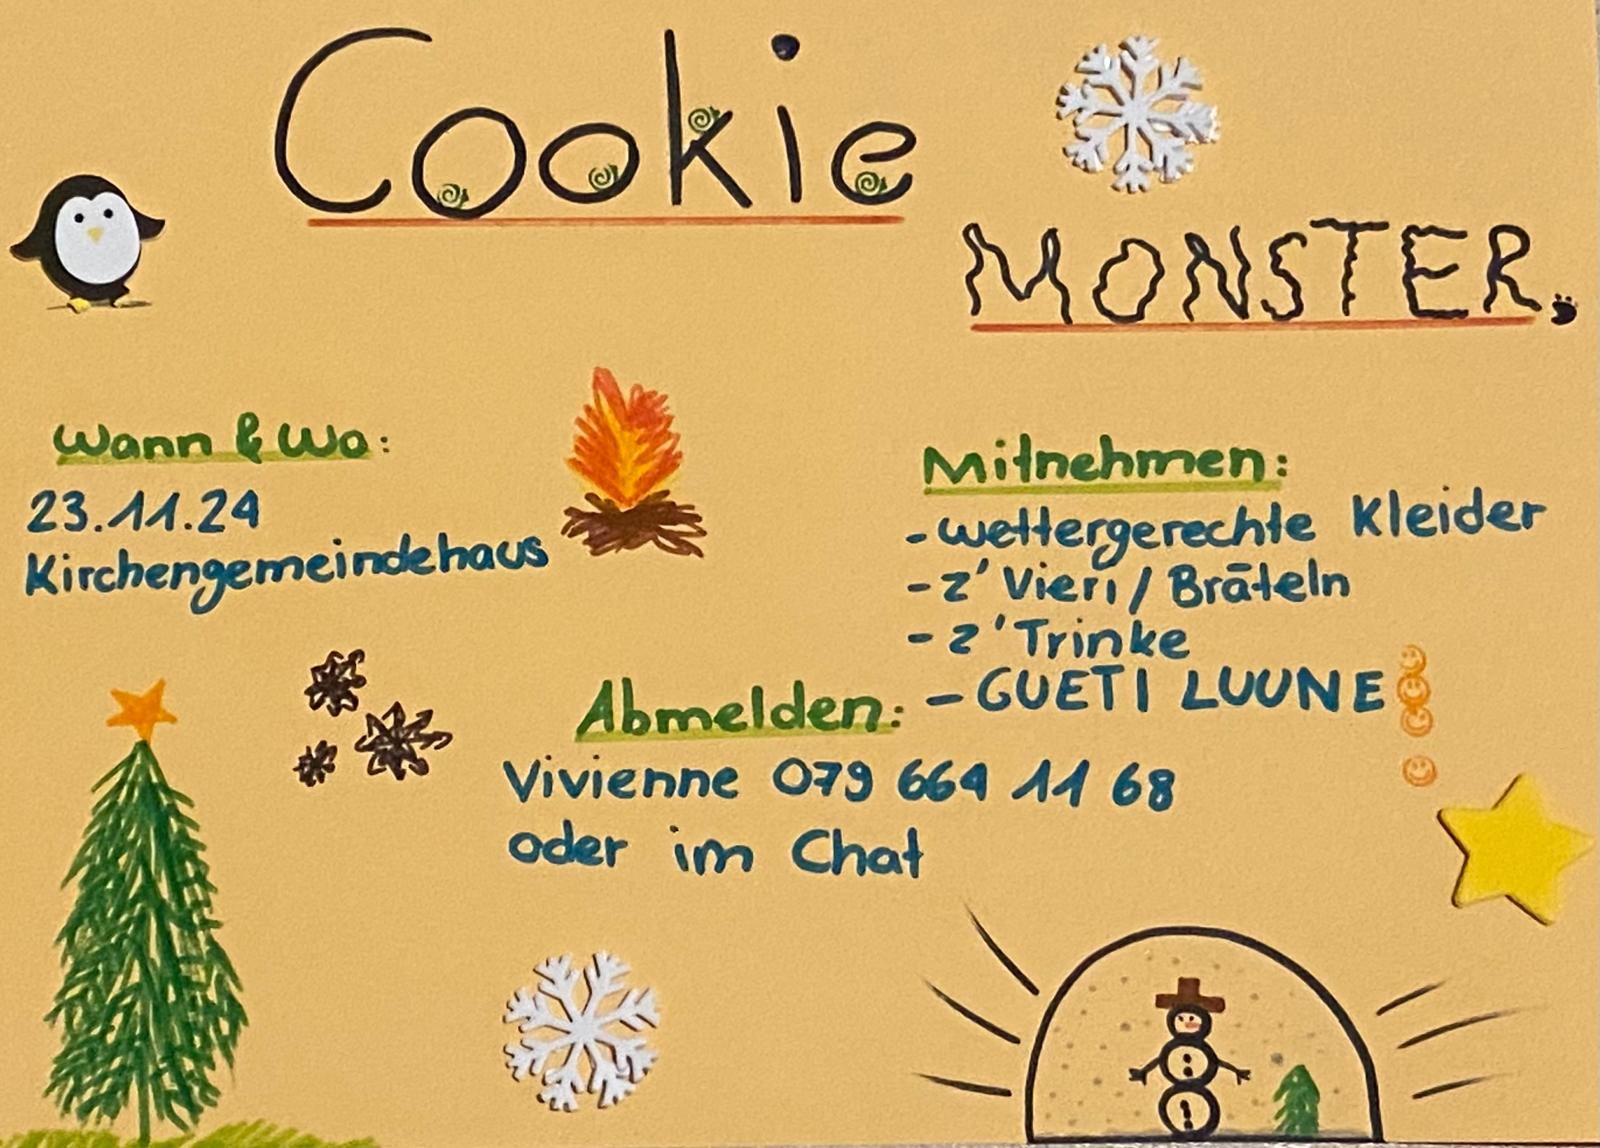 Cookie
MONSTER
Wann & Wo:
23.11.24
Kirchengemeindehaus
Mitnehmen:
- wettergerechte Kleider
- z'Vieri / Bräteln
- z'Trinke
- GUETI LUUNE
Abmelden:
Vivienne 079 664 11 68
oder im Chat